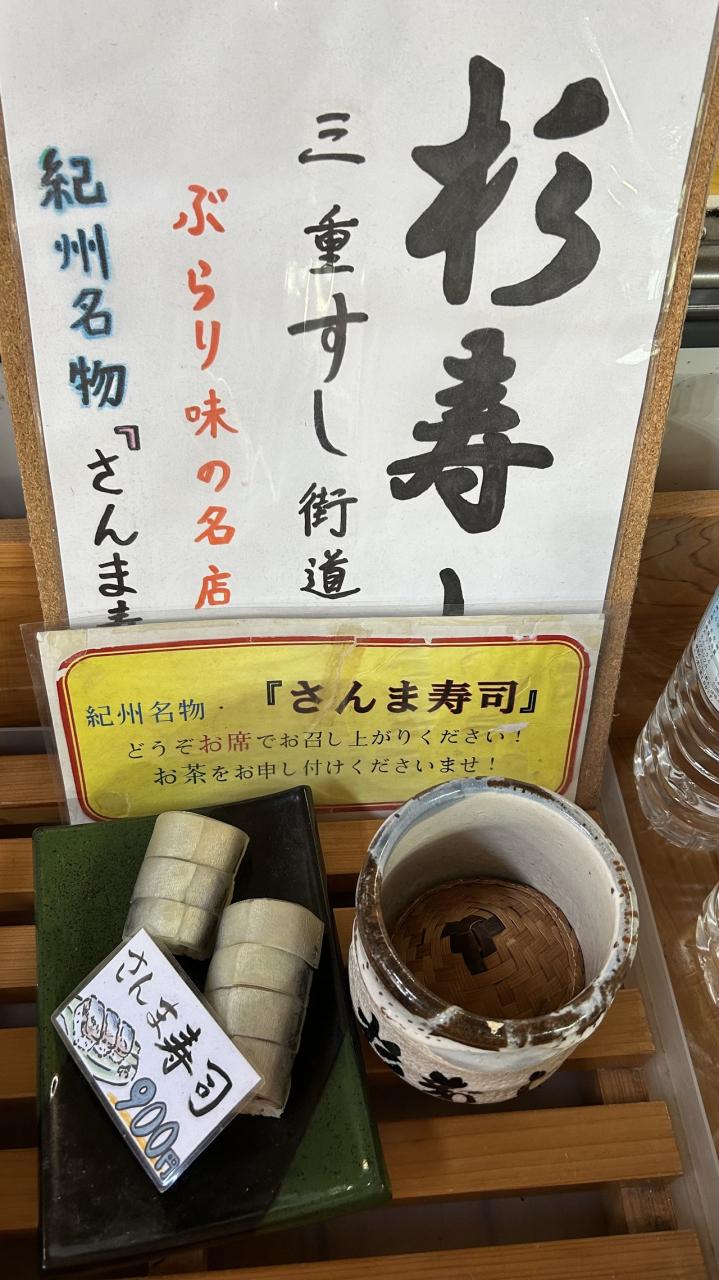 杉寿し
三重すし街道
ぶらり味の名店
紀州名物『さんま寿
紀州名物・『さんま寿司』
どうぞお席でお召し上がりください！
お茶をお申し付けくださいませ！
さんま寿司
900円